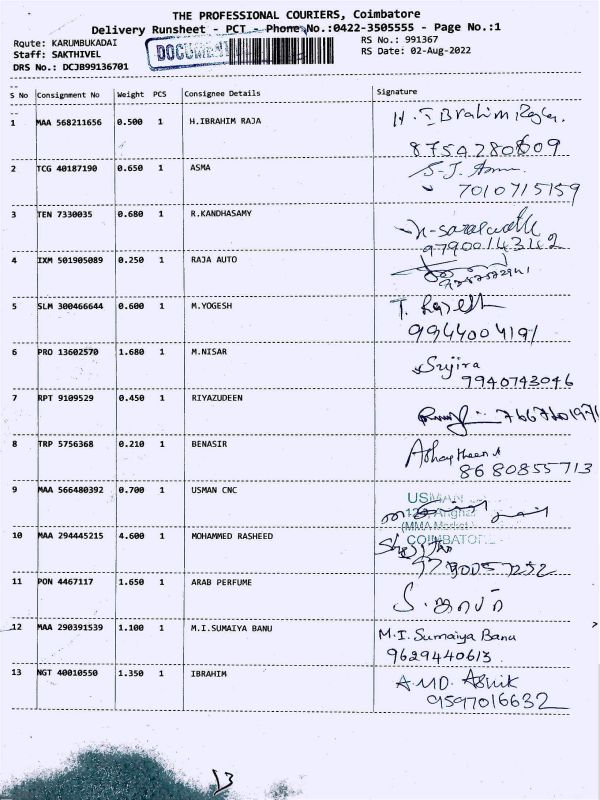 THE PROFESSIONAL COURIERS, Coimbatore
Delivery Runsheet - PCT - Phone No.:0422-3505555 - Page No.:1
Route: KARUMBUKADAI RS No.: 991367
Staff: SAKTHIVEL DOCUMENT RS Date: 02-Aug-2022
DRS No.: DCJB99136701
S No Consignment No Weight PCS Consignee Details Signature
1 MAA 568211656 0.500 1 H.IBRAHIM RAJA H. IBrahim Raja.
8754280609
2 TCG 40187190 0.650 1 ASMA S-J. Asma
7010715159
3 TEN 7330035 0.680 1 R.KANDHASAMY
97900143142
4 IXM 501905089 0.250 1 RAJA AUTO
5 SLM 300466644 0.600 1 M.YOGESH
9944004191
6 PRO 13602570 1.680 1 M.NISAR Sujira
9940743046
7 RPT 9109529 0.450 1 RIYAZUDEEN
8 TRP 5756368 0.210 1 BENASIR
8680855713
9 MAA 566480392 0.700 1 USMAN CNC USMAN
(MMA Market)
COIMBATORE
10 MAA 294445215 4.600 1 MOHAMMED RASHEED
11 PON 4467117 1.650 1 ARAB PERFUME
12 MAA 290391539 1.100 1 M.I.SUMAIYA BANU M.I. Sumaiya Banu
9629440613
13 NGT 40010550 1.350 1 IBRAHIM A.MD. Ashik
9597016632
13